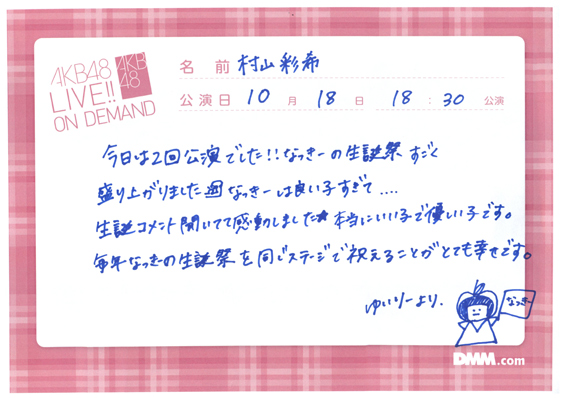 AKB48
LIVE!!
ON DEMAND
AKB
48
名前 村山彩希
公演日 10月 18日 18:30公演
今日は2回公演でした!!なっきーの生誕祭すごく
盛り上がりました なっきーは良い子すぎて....
生誕コメント聞いてて感動しました★本当にいい子で優しい子です。
毎年なっきーの生誕祭を同じステージで祝えることがとても幸せです。
ゆいりーより.
なっきー
DMM.com